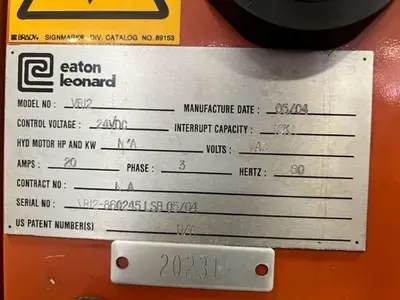 BRADY SIGNMARK® DIV. CATALOG NO. 89153
eaton
leonard
MODEL NO : VB12 MANUFACTURE DATE : 05/04
CONTROL VOLTAGE : 24VDC INTERRUPT CAPACITY :
HYD MOTOR HP AND KW N/A VOLTS :
AMPS : 20 PHASE : 3 HERTZ : 60
CONTRACT NO : N/A
SERIAL NO : 05/04
US PATENT NUMBER(S)
20231